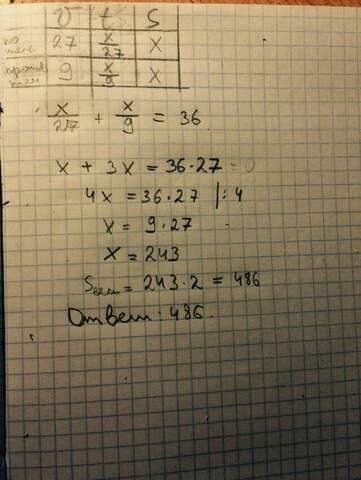 v t S
по теч 27 x/27 x
против теч 9 x/9 x
x/27 + x/9 = 36
x + 3x = 36·27 = 0
4x = 36·27 |:4
x = 9·27
x = 243
= 243·2 = 486
Ответ: 486.